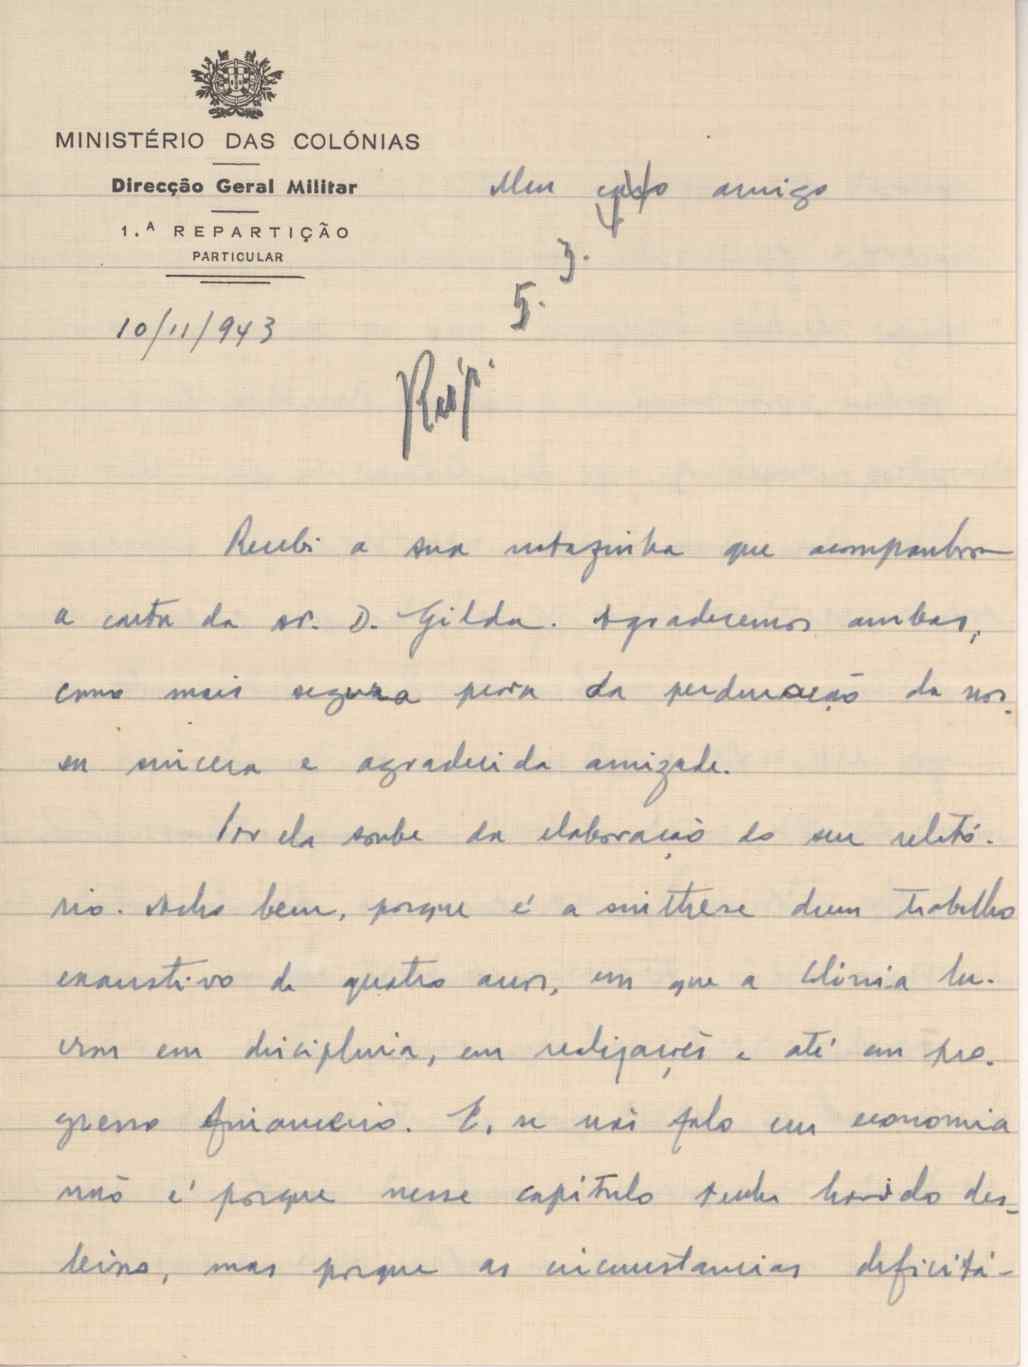 MINISTÉRIO DAS COLÓNIAS
Direcção Geral Militar
1.ª REPARTIÇÃO
PARTICULAR
10/11/943
Meu caro amigo
3.
5.
Recebi a sua notazinha que acompanhou
a carta da sr. D. Gilda. Agradecemos ambas,
como mais segura prova da perduração da nos-
sa sincera e agradecida amizade.
Por ela soube da elaboração do seu relató-
rio. Acho bem, porque é a sinthese dum trabalho
exaustivo de quatro anos, em que a Colónia lu-
crou em disciplina, em realizações e até em pro-
gresso financeiro. E, se não falo em economia
não é porque nesse capítulo tenha havido des-
leixo, mas porque as circunstancias deficitá-